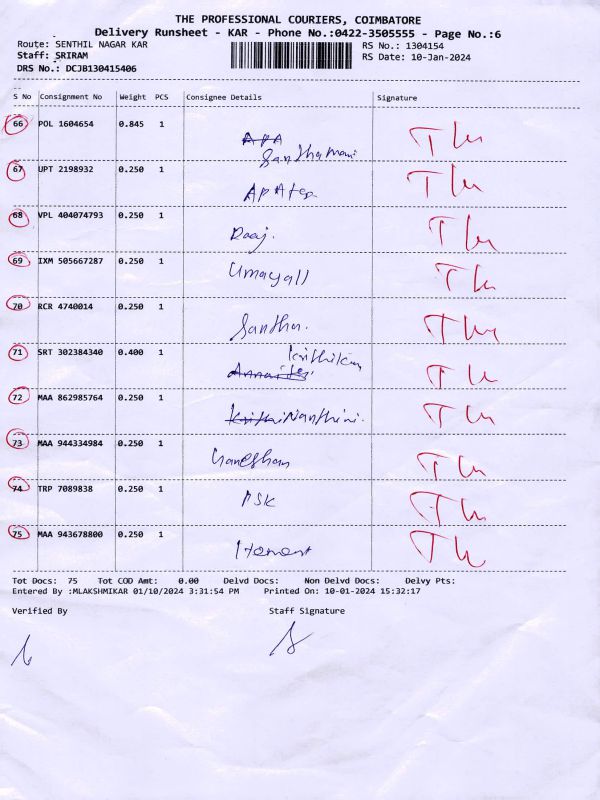 THE PROFESSIONAL COURIERS, COIMBATORE
Delivery Runsheet - KAR - Phone No.:0422-3505555 - Page No.:6
Route: SENTHIL NAGAR KAR RS No.: 1304154
Staff: SRIRAM RS Date: 10-Jan-2024
DRS No.: DCJB130415406
S No Consignment No Weight PCS Consignee Details Signature
66 POL 1604654 0.845 1
Santhamani
67 UPT 2198932 0.250 1
68 VPL 404074793 0.250 1
Raaj.
69 IXM 505667287 0.250 1 Umayall
70 RCR 4740014 0.250 1
Santha.
71 SRT 302384340 0.400 1
72 MAA 862985764 0.250 1
Nanthini.
73 MAA 944334984 0.250 1
Ganeshan
74 TRP 7089838 0.250 1
PSK
75 MAA 943678800 0.250 1
Tot Docs: 75 Tot COD Amt: 0.00 Delvd Docs: Non Delvd Docs: Delvy Pts:
Entered By :MLAKSHMIKAR 01/10/2024 3:31:54 PM Printed On: 10-01-2024 15:32:17
Verified By Staff Signature